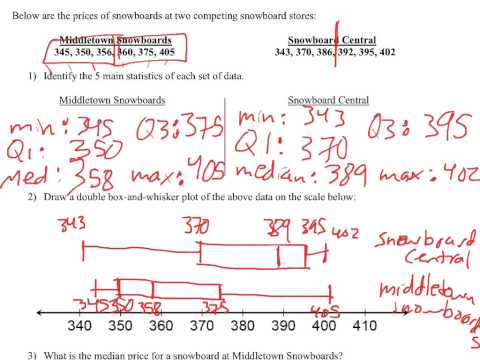 Below are the prices of snowboards at two competing snowboard stores:
Middletown Snowboards Snowboard Central
345, 350, 356, 360, 375, 405 343, 370, 386, 392, 395, 402
1) Identify the 5 main statistics of each set of data.
Middletown Snowboards Snowboard Central
min: 345 Q3: 375 min: 343 Q3: 395
Q1: 350 Q1: 370
Med: 358 max: 405 median: 389 max: 402
2) Draw a double box-and-whisker plot of the above data on the scale below:
343 370 389 395 402
snowboard
Central
middletown
snowboards
345 350 358 375 405
340 350 360 370 380 390 400 410
3) What is the median price for a snowboard at Middletown Snowboards?